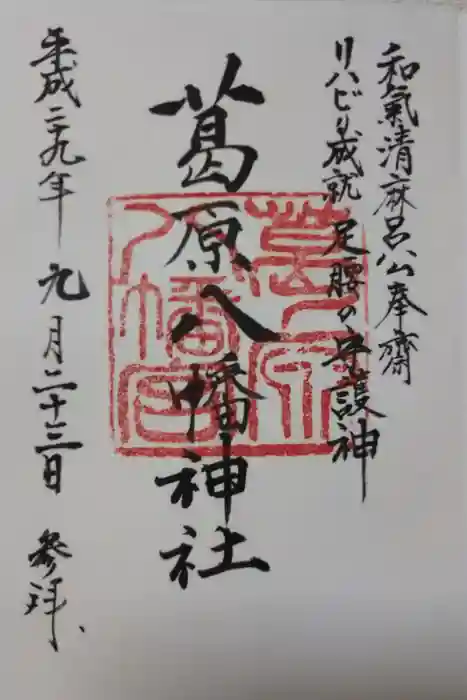 和氣清麻呂公奉齋
リハビリ成就、足腰の守護神
葛原八幡神社
平成二十九年九月二十三日 参拜、